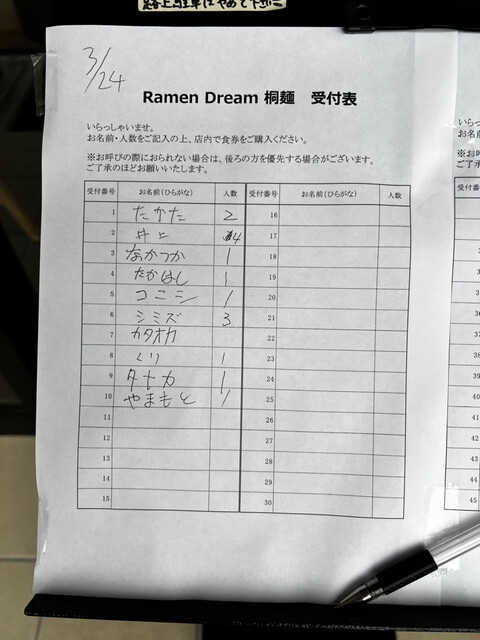 路上駐車はやめて下さい
3/24
Ramen Dream 桐麺 受付表
いらっしゃいませ。
お名前・人数をご記入の上、店内で食券をご購入ください。
※お呼びの際におられない場合は、後ろの方を優先する場合がございます。
ご了承のほどお願いいたします。
受付番号 お名前(ひらがな) 人数 受付番号 お名前(ひらがな) 人数
1 たかた 2 16
2 井上 4 17
3 なかつか 1 18
4 たかはし 1 19
5 コニシ 1 20
6 シミズ 3 21
7 カタオカ 22
8 くり 1 23
9 タナカ 1 24
10 やまもと 1 25
11 26
12 27
13 28
14 29
15 30
いらっしゃ
お名前・人
※お呼びの
ご了承の
受付番号
40
41
42
43
44
45